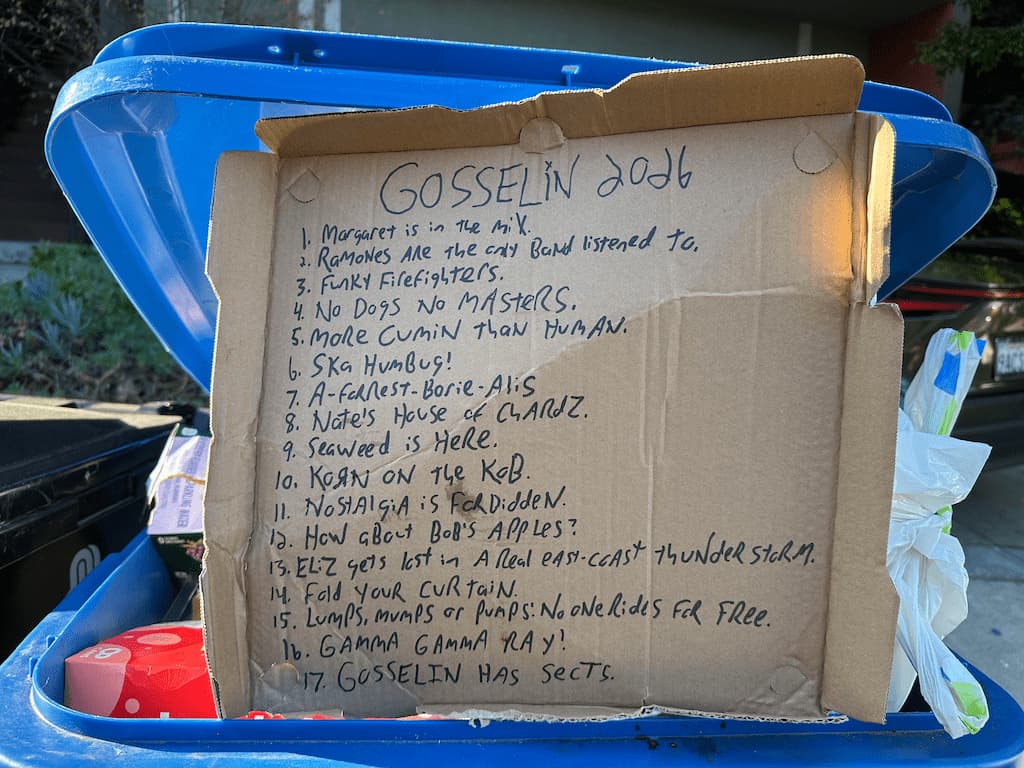 GOSSELIN 2026
1. Margaret is in the mix.
2. RAMONES ARE the only Band listened to.
3. FUNKY FireFighters.
4. NO DOGS NO MASTERS.
5. MORE CUMIN than HUMAN.
6. SKA HUMBUG!
7. A-FORREST-Borie-Alis
8. Nate's House of CHARDZ.
9. Seaweed is HeRe.
10. KOЯN ON the KOB.
11. NOSTALGIA is FORDidden.
12. How about BOB'S APPLES?
13. ELiZ gets lost in A Real east-coast thunderstorm.
14. Fold YOUR CURTAIN.
15. Lumps, mumps or pumps: No one Rides FOR FREE.
16. GAMMA GAMMA RAY!
17. GOSSELIN HAS Sects.